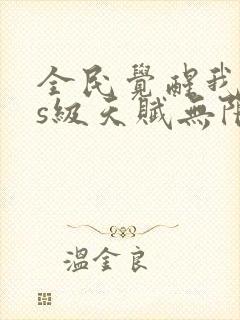 全民覺醒我
s級天賦無限
溫金良